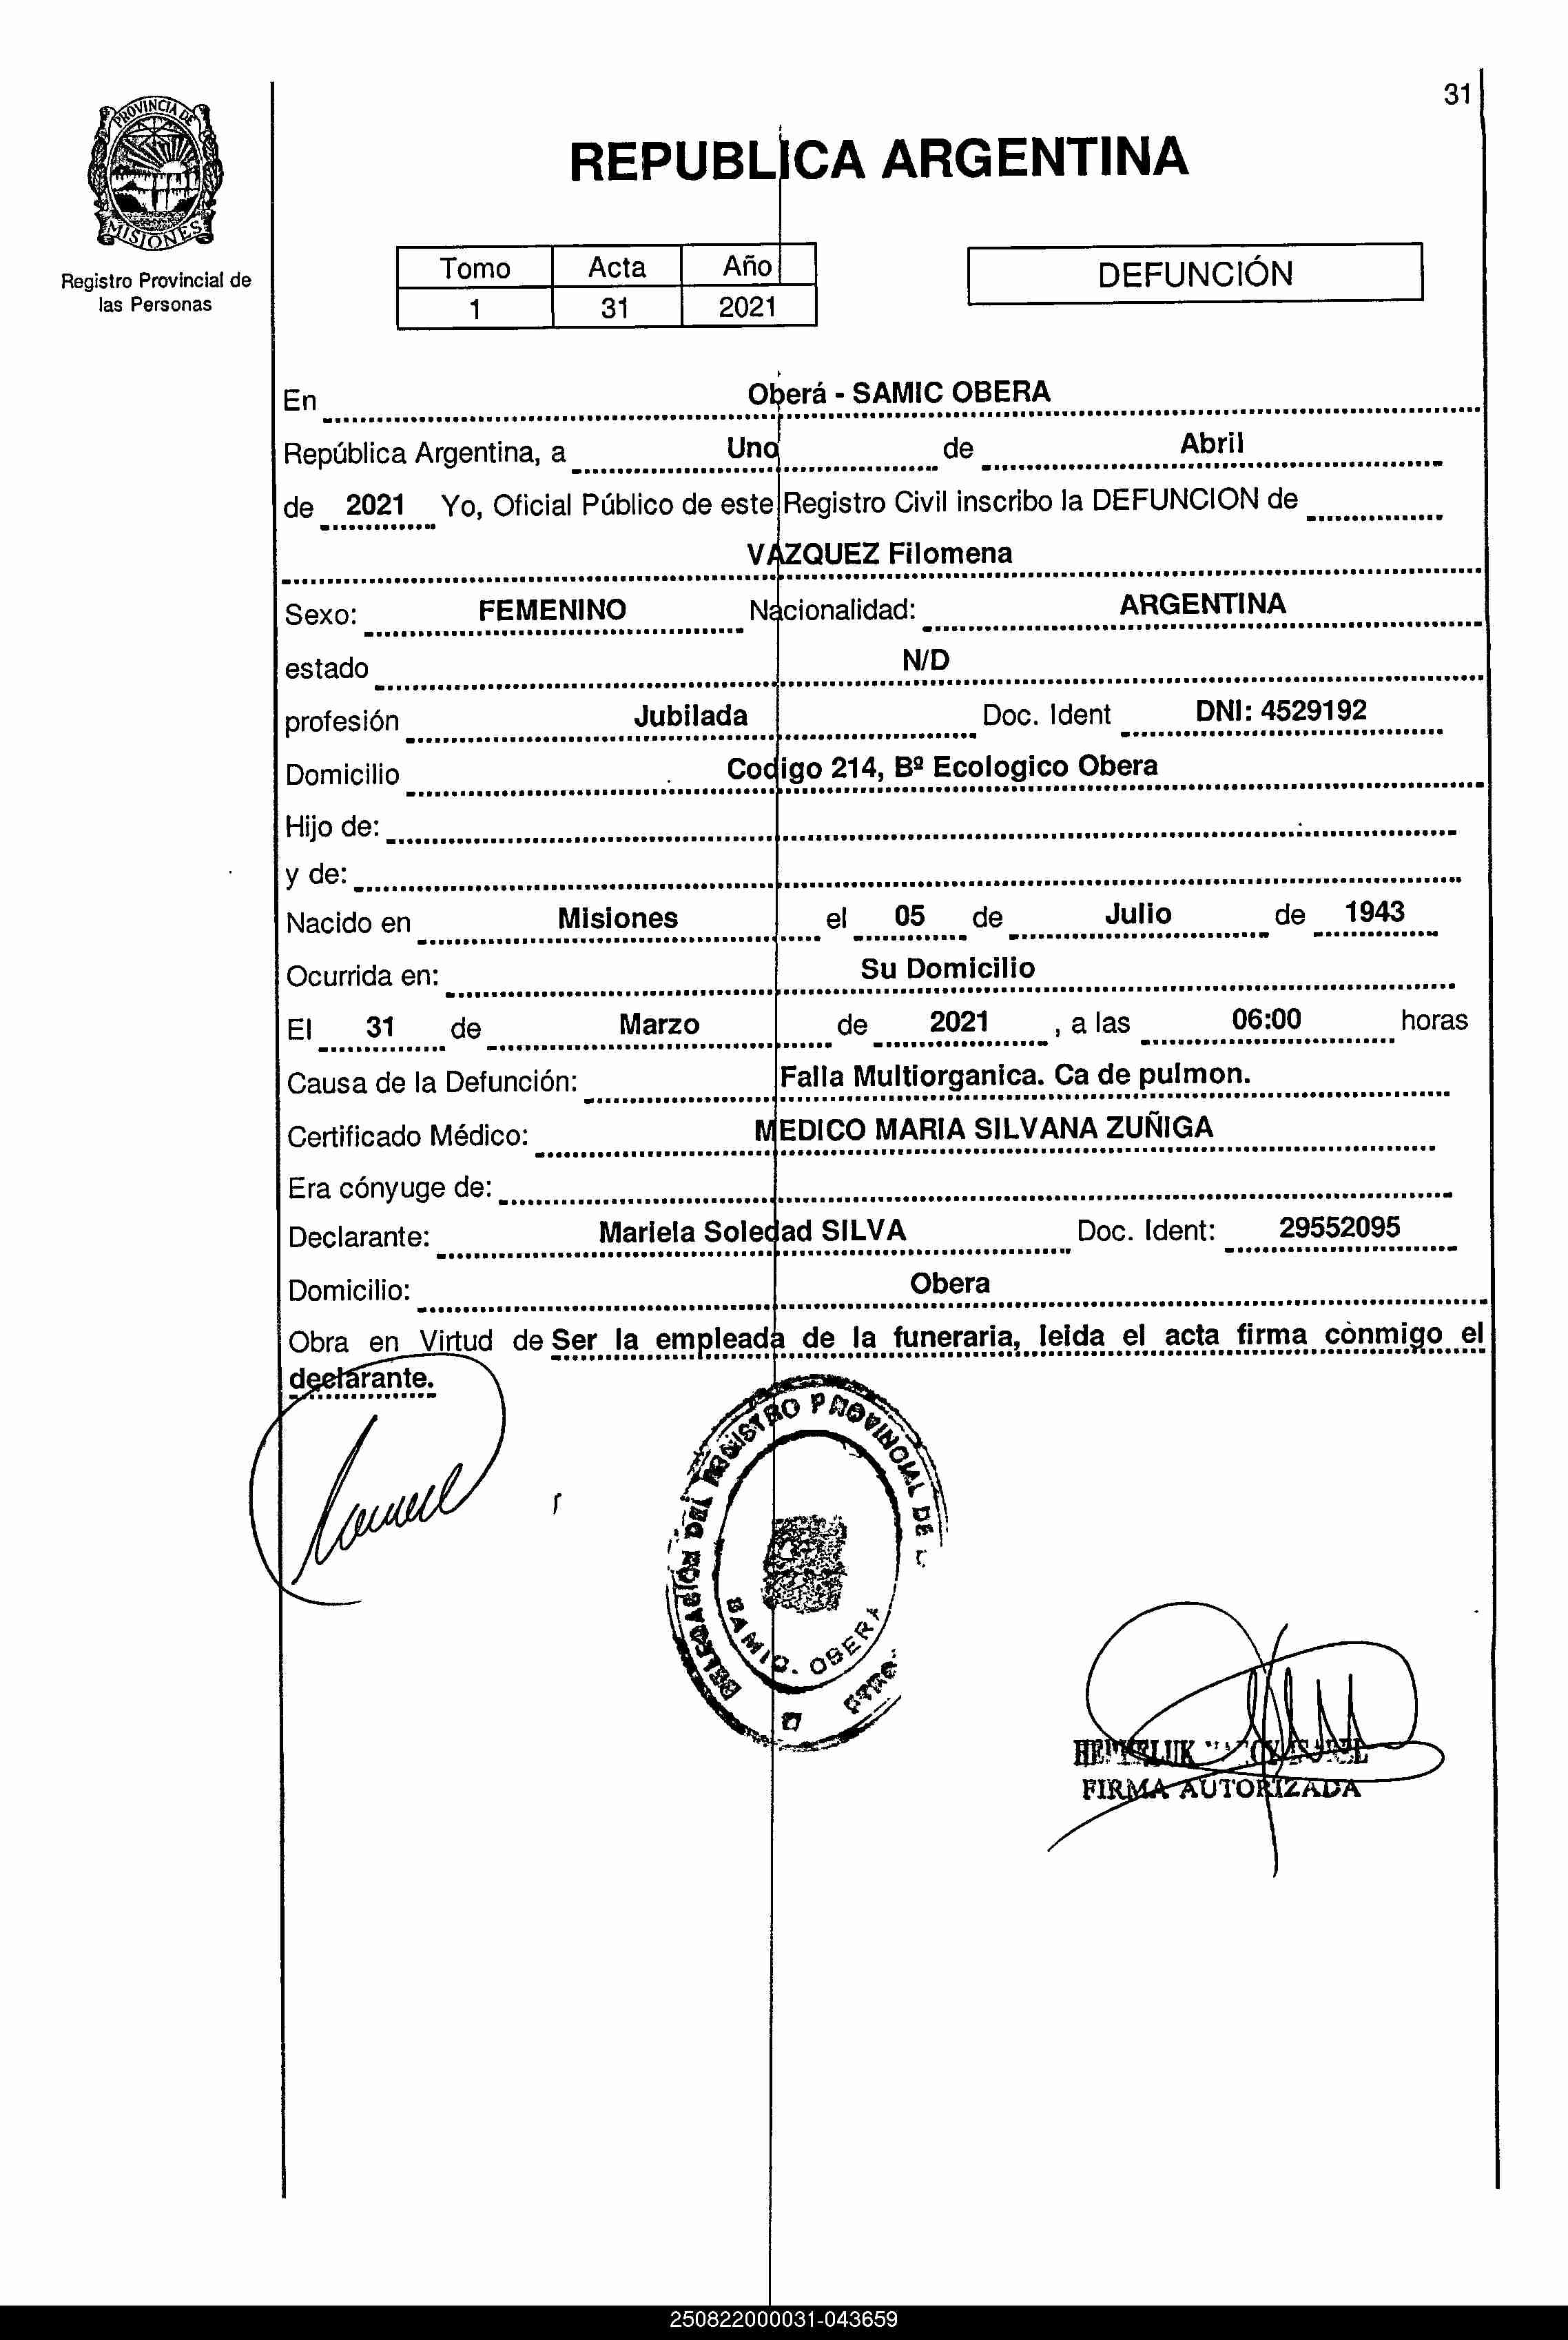 31
PROVINCIA DE
MISIONES
Registro Provincial de
las Personas
REPUBLICA ARGENTINA
Tomo Acta Año
1 31 2021
DEFUNCIÓN
En Oberá - SAMIC OBERA
República Argentina, a Uno de Abril
de 2021 Yo, Oficial Público de este Registro Civil inscribo la DEFUNCION de
VAZQUEZ Filomena
Sexo: FEMENINO Nacionalidad: ARGENTINA
estado N/D
profesión Jubilada Doc. Ident DNI: 4529192
Domicilio Codigo 214, Bº Ecologico Obera
Hijo de:
y de:
Nacido en Misiones el 05 de Julio de 1943
Ocurrida en: Su Domicilio
El 31 de Marzo de 2021 , a las 06:00 horas
Causa de la Defunción: Falla Multiorganica. Ca de pulmon.
Certificado Médico: MEDICO MARIA SILVANA ZUÑIGA
Era cónyuge de:
Declarante: Mariela Soledad SILVA Doc. Ident: 29552095
Domicilio: Obera
Obra en Virtud de Ser la empleada de la funeraria, leida el acta firma conmigo el
declarante.
DELEGACION DEL REGISTRO PROVINCIAL DE
SAMIC. OBERA
FIRMA AUTORIZADA
250822000031-043659